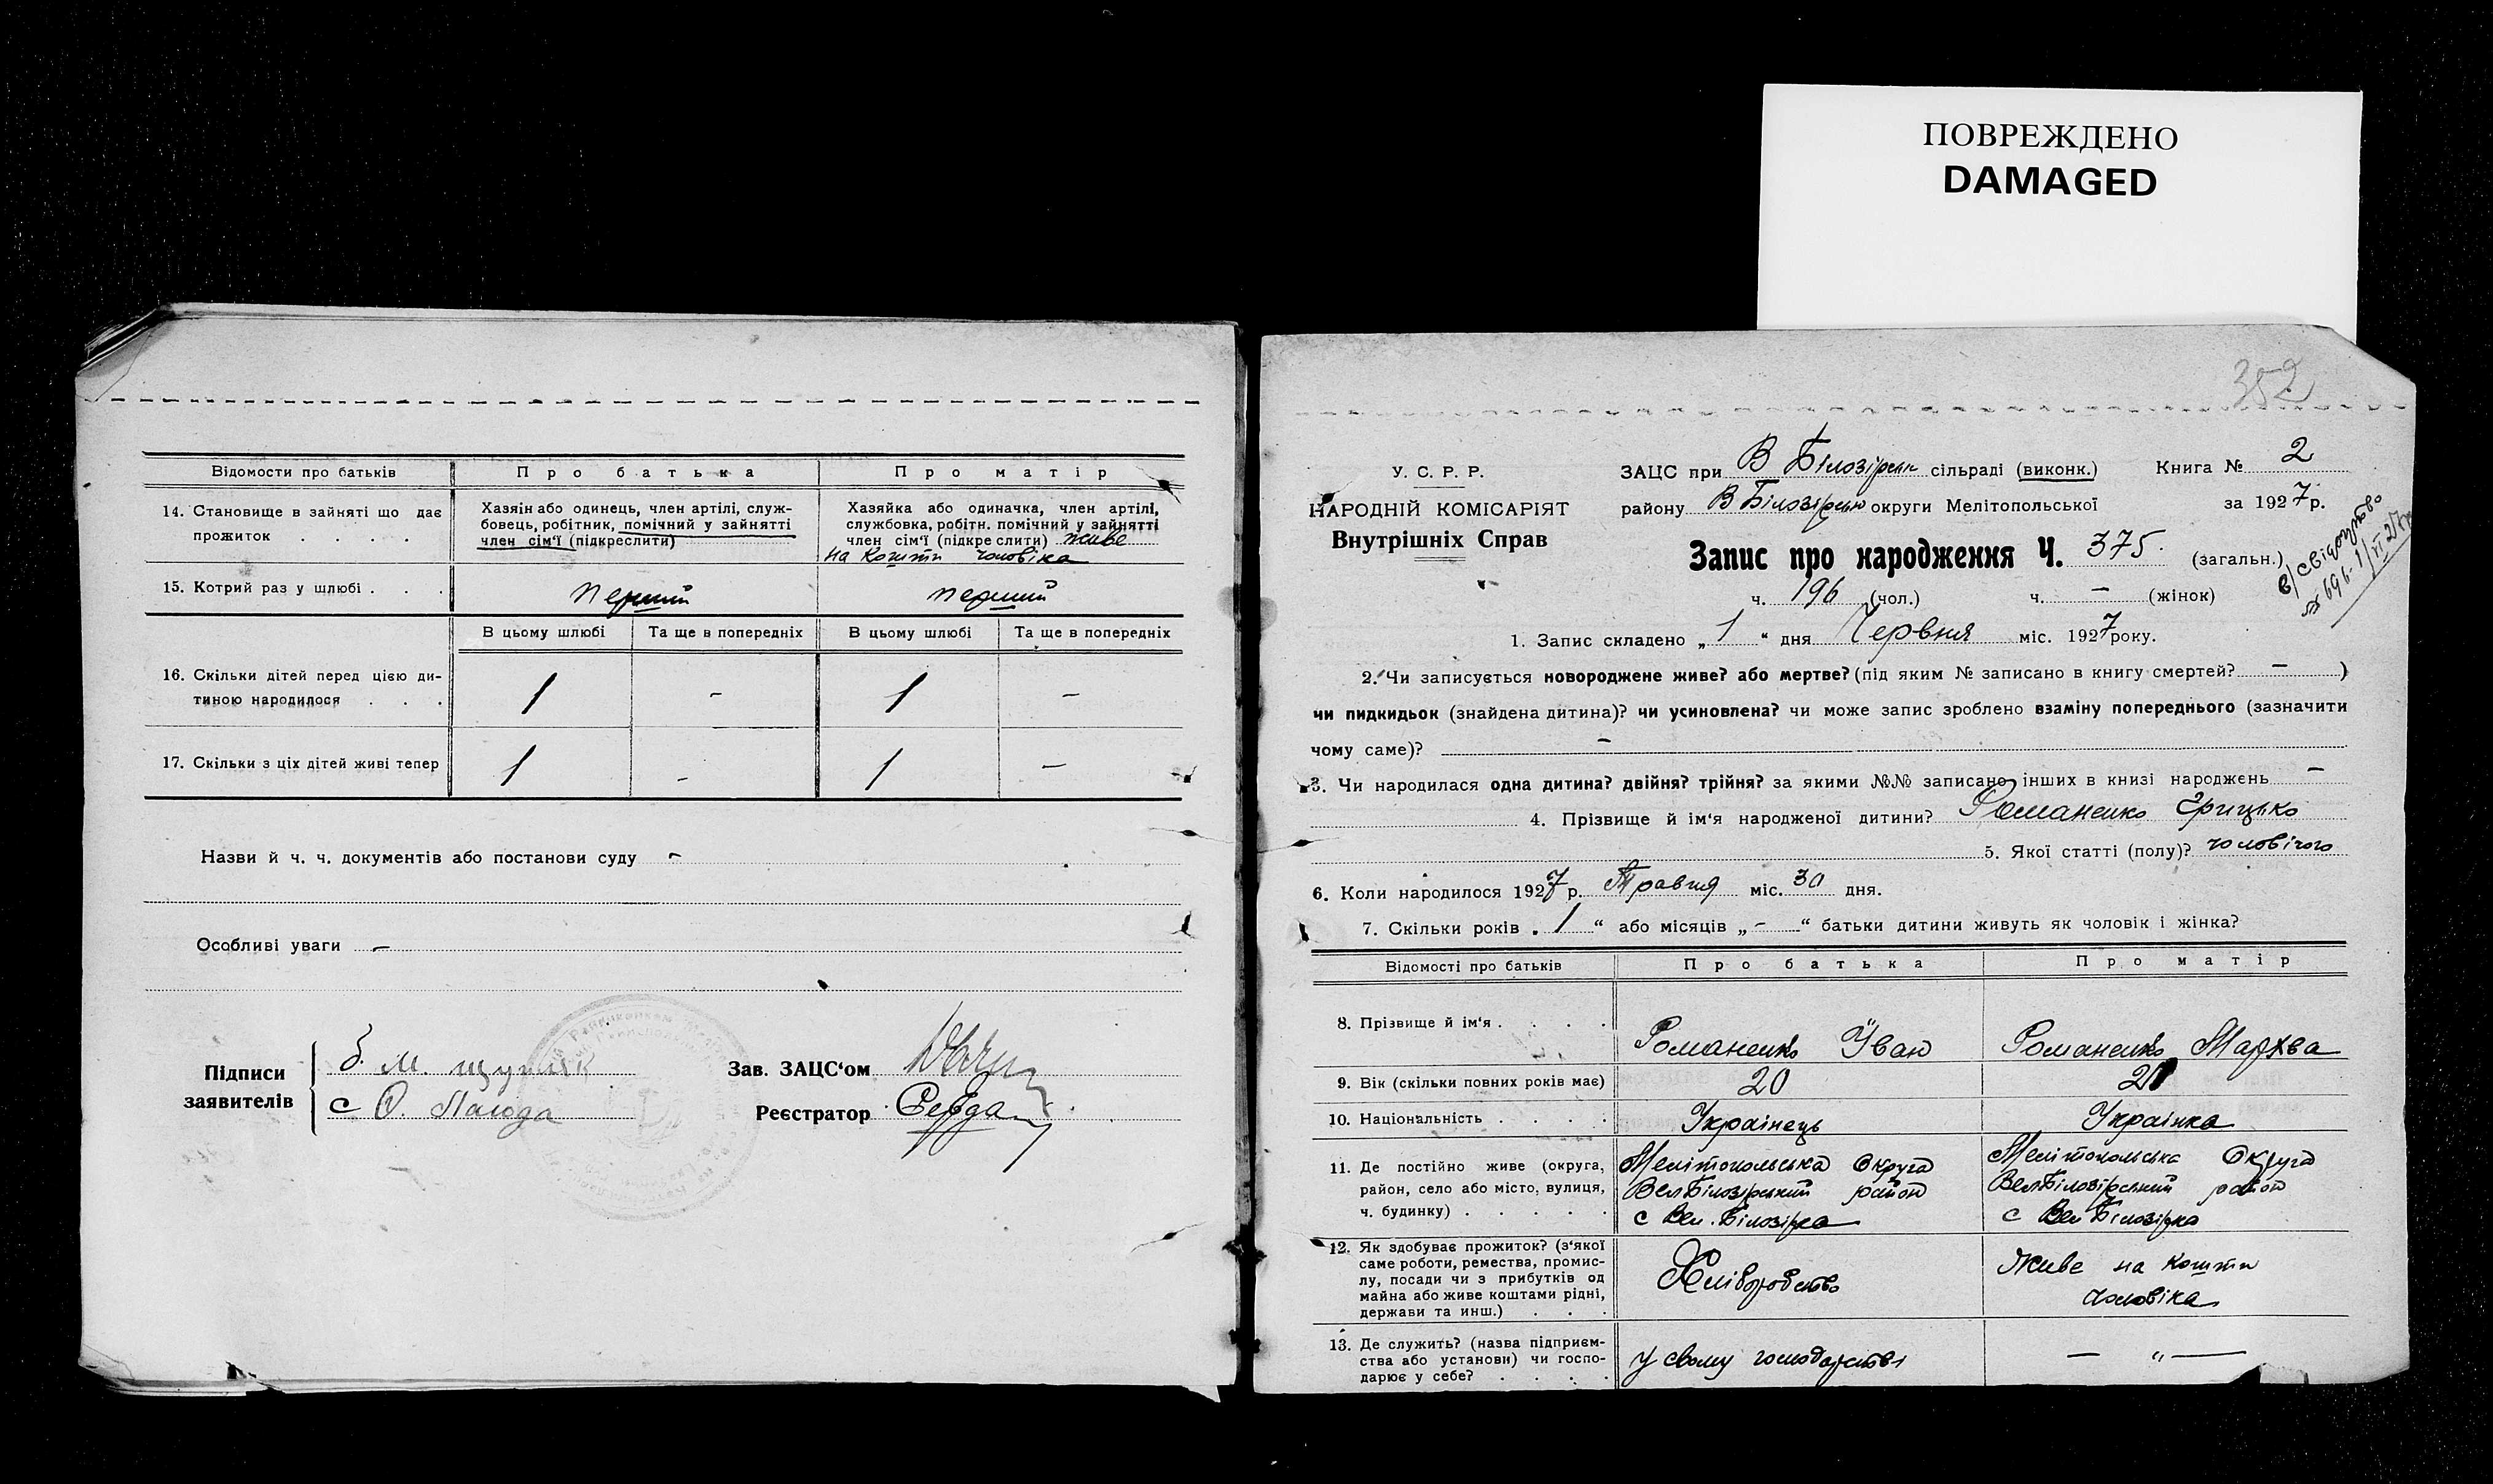 ПОВРЕЖДЕНО
DAMAGED
Відомости про батьків Про батька Про матір
14. Становище в зайняті що дає прожиток . . . .
Хазяїн або одинець, член артілі, служ-
бовець, робітник, помічний у зайнятті
член сім'ї (підкреслити)
Хазяйка або одиначка, член артілі,
службовка, робітн. помічний у зайнятті
член сім'ї (підкреслити) живе
на кошти чоловіка
15. Котрий раз у шлюбі . . . перший перший
В цьому шлюбі Та ще в попередніх В цьому шлюбі Та ще в попередніх
16. Скільки дітей перед цією ди-
тиною народилося . . . 1 - 1 -
17. Скільки з ціх дітей живі тепер 1 - 1 -
Назви й ч. ч. документів або постанови суду -
Особливі уваги -
Підписи
заявителів
б. М.
с О.
Зав. ЗАЦС'ом
Реєстратор Середа
352
У. С. Р. Р.
НАРОДНІЙ КОМІСАРІЯТ
Внутрішніх Справ
ЗАЦС при В Білозірськ сільраді (виконк.) Книга № 2
району В Білозірськ округи Мелітопольської за 1927 р.
Запис про народження Ч. 375. (загальн.)
ч. 196 (чол.) ч. — (жінок)
в/свідоцтво
№ 696-1/VI 27р
1. Запис складено „1“ дня Червня міс. 1927 року.
2. Чи записується новороджене живе? або мертве? (під яким № записано в книгу смертей? — )
чи пидкидьок (знайдена дитина)? чи усиновлена? чи може запис зроблено взаміну попереднього (зазначити
чому саме)? —
3. Чи народилася одна дитина? двійня? трійня? за якими №№ записано інших в книзі народжень —
4. Прізвище й ім'я народженої дитини? Романенко Грицько
5. Якої статті (полу)? чоловічого
6. Коли народилося 1927 р. Травня міс. 30 дня.
7. Скільки років „1“ або місяців „-“ батьки дитини живуть як чоловік і жінка?
Відомості про батьків Про батька Про матір
8. Прізвище й ім'я . . . . Романенко Іван Романенко Мархва
9. Вік (скільки повних років має) 20
10. Національність . . . . Українець Українка
11. Де постійно живе (округа,
район, село або місто, вулиця,
ч. будинку) . . . . .
Мелітопольська Округа
Вел Білозірський район
с Вел. Білозірка
Мелітопольська Округа
Вел Білозірський район
с Вел Білозірка
12. Як здобуває прожиток? (з'якої
саме роботи, ремества, промис-
лу, посади чи з прибутків од
майна або живе коштами рідні,
держави та инш.) . . .
Хліборобство
Живе на кошти
чоловіка
13. Де служить? (назва підприєм-
ства або установи) чи госпо-
дарює у себе? . . . .
у свому господарстві
— „ —